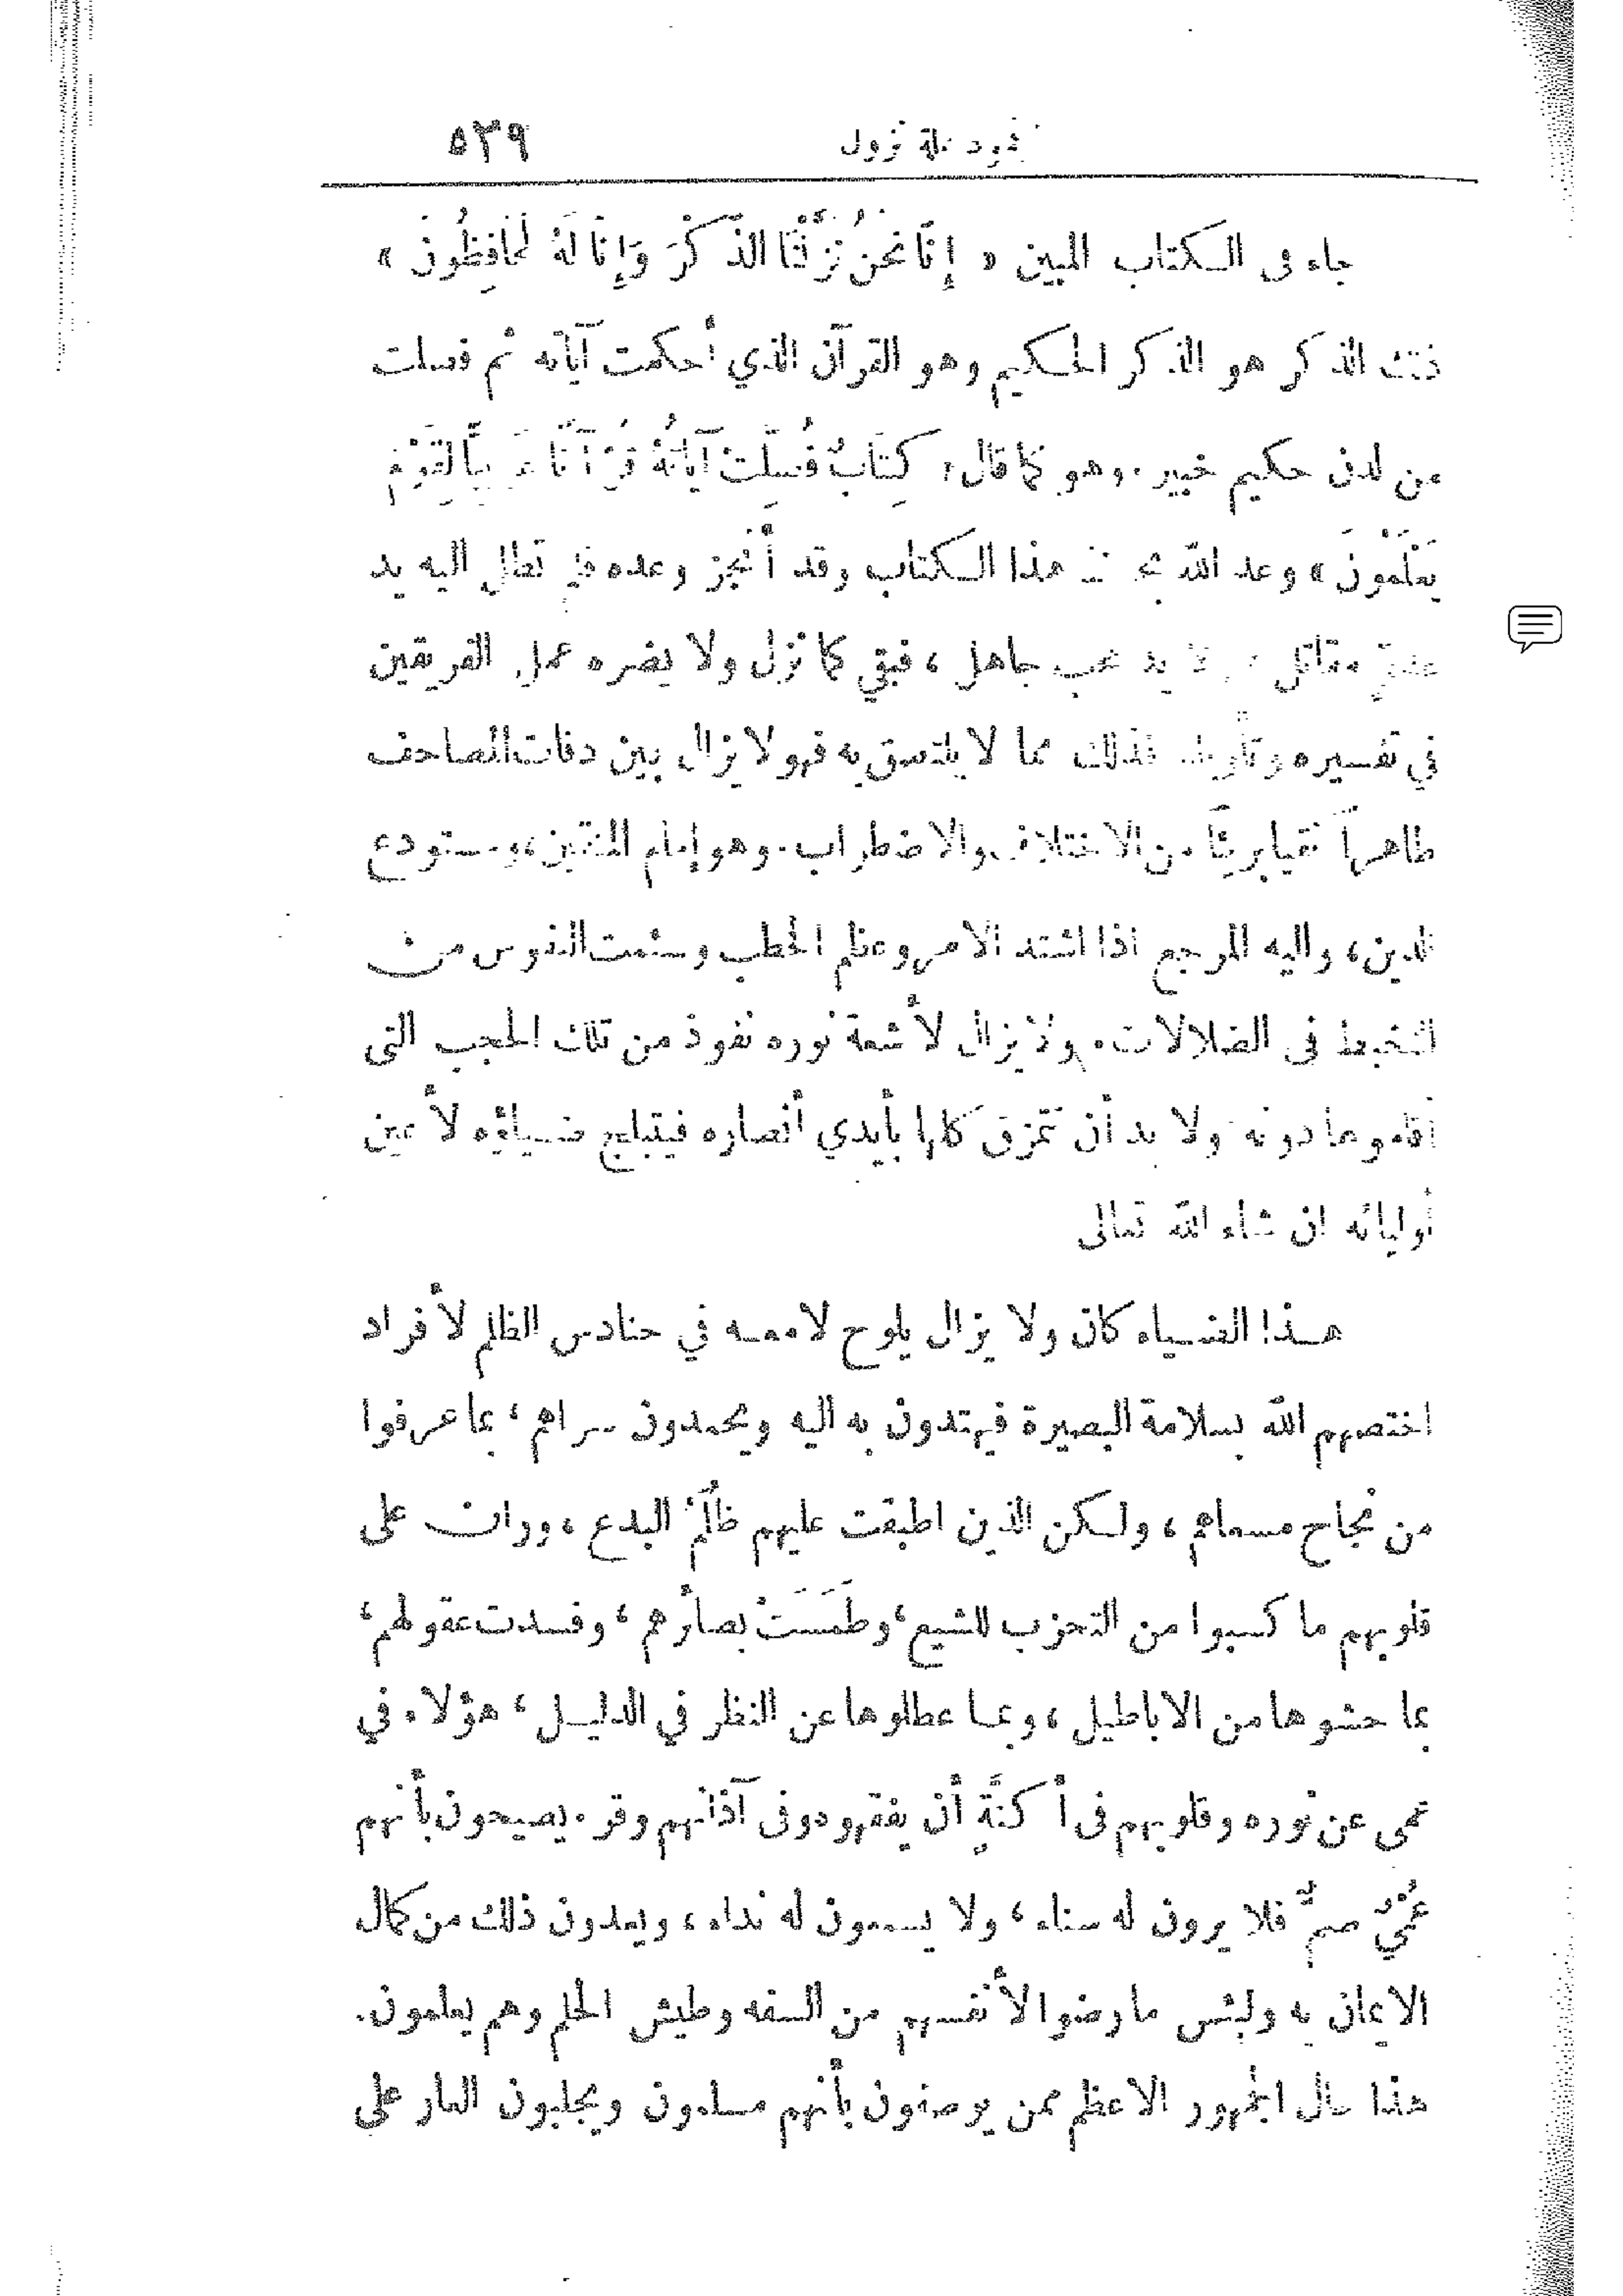 ٥٣٩
جاء فى الكتاب المبين « إِنَّا نَحْنُ نَزَّلْنَا الذِّكْرَ وَإِنَّا لَهُ لَحَافِظُونَ »
ذلك الذكر هو الذكر الحكيم وهو القرآن الذي أحكمت آياته ثم فصلت
من لدن حكيم خبير . وهو كما قال « كِتَابٌ فُصِّلَتْ آيَاتُهُ قُرْآنًا عَرَبِيًّا لِقَوْمٍ
يَعْلَمُونَ » وعد الله هذا الكتاب وقد أنجز وعده فلم تطل اليه يد
عدوٍّ مقاتل يد محب جاهل ، فبقي كما نزل ولا يضره عمل الفريقين
في تفسيره وتأويله فذلك مما لا يلتصق به فهو لا يزال بين دفات المصاحف
طاهراً نقيا بريئًا من الاختلاف والاضطراب . وهو إمام المتقين ، ومستودع
الدين ، واليه المرجع اذا اشتد الامر وعظم الخطب وسئمت النفوس من
التخبط فى الضلالات . ولا يزال لأشعة نوره نفوذ من تلك الحجب التى
أقاموها دونه ولا بد أن تتمزق كلها بأيدي أنصاره فيتبلج ضياؤه لأعين
أوليائه ان شاء الله تعالى
هذا الضياء كان ولا يزال يلوح لامعه في حنادس الظلم لأفراد
اختصهم الله بسلامة البصيرة فيهتدون به اليه ويحمدون سراهم ، بما عرفوا
من نجاح مسعاهم ، ولكن الذين اطبقت عليهم ظُلَمُ البدع ، وران على
قلوبهم ما كسبوا من التحزب للشيع ، وطَمَسَتْ بصائرهم ، وفسدت عقولهم ،
بما حشوها من الاباطيل ، وبما عطلوها عن النظر في الدليل ، هؤلاء في
عمى عن نوره وقلوبهم فى أكنَّةٍ أن يفقهوه وفى آذانهم وقر . يصيحون بأنهم
عُمْيٌ صمٌّ فلا يرون له سناء ، ولا يسمعون له نداء ، ويعدون ذلك من كمال
الايمان به ولبئس ما رضوا لأنفسهم من السفه وطيش الحلم وهم يعلمون .
هذا حال الجمهور الاعظم ممن يوصفون بأنهم مسلمون ويجلبون العار على